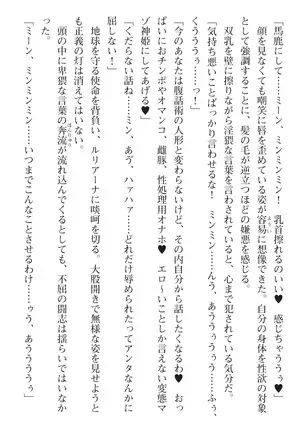 「馬鹿にして……ミーン、ミンミンミン！　乳首擦れるのいい♥　感じちゃううぅ♥」
　顔を見なくても嘲笑に唇を歪めている姿が容易に想像できた。自分の身体を性欲の対象
として強調することに、髪の毛が逆立つほどの嫌悪を感じる。
　双乳を壁に擦りながら淫猥な言葉を言わされていると、心まで犯されている気分だ。
「気持ち悪いことばっかり言わせるな！　ミンミン……んう、あうぅぅぅ……ふぅ、
くううぅぅ……っ」
「今のあなたは腹話術の人形と変わらないけど、その内自分から話したくなるわ♥　おっ
ぱいにおチンポやオマンコ、雌豚、性処理用オナホ♥　エローいことしか言えない変態マ
ゾ神姫にしてあげる♥」
「くだらない話ね……ミン、あう、ハァハァ……だけど辱められたってアンタなんかに
屈しない！」
　地球を守る使命を背負い、ルリアーナに啖呵を切る。大股開きで無様な姿を見せようと
も正義の灯は消えてはいない。
　頭の中に卑猥な言葉の奔流が流れ込んでくるとしても、不屈の闘志は揺らいではいなか
った。
「ミーン、ミンミンミン……いつまでこんなことさせるわけ……ぅう、あうううぅ」